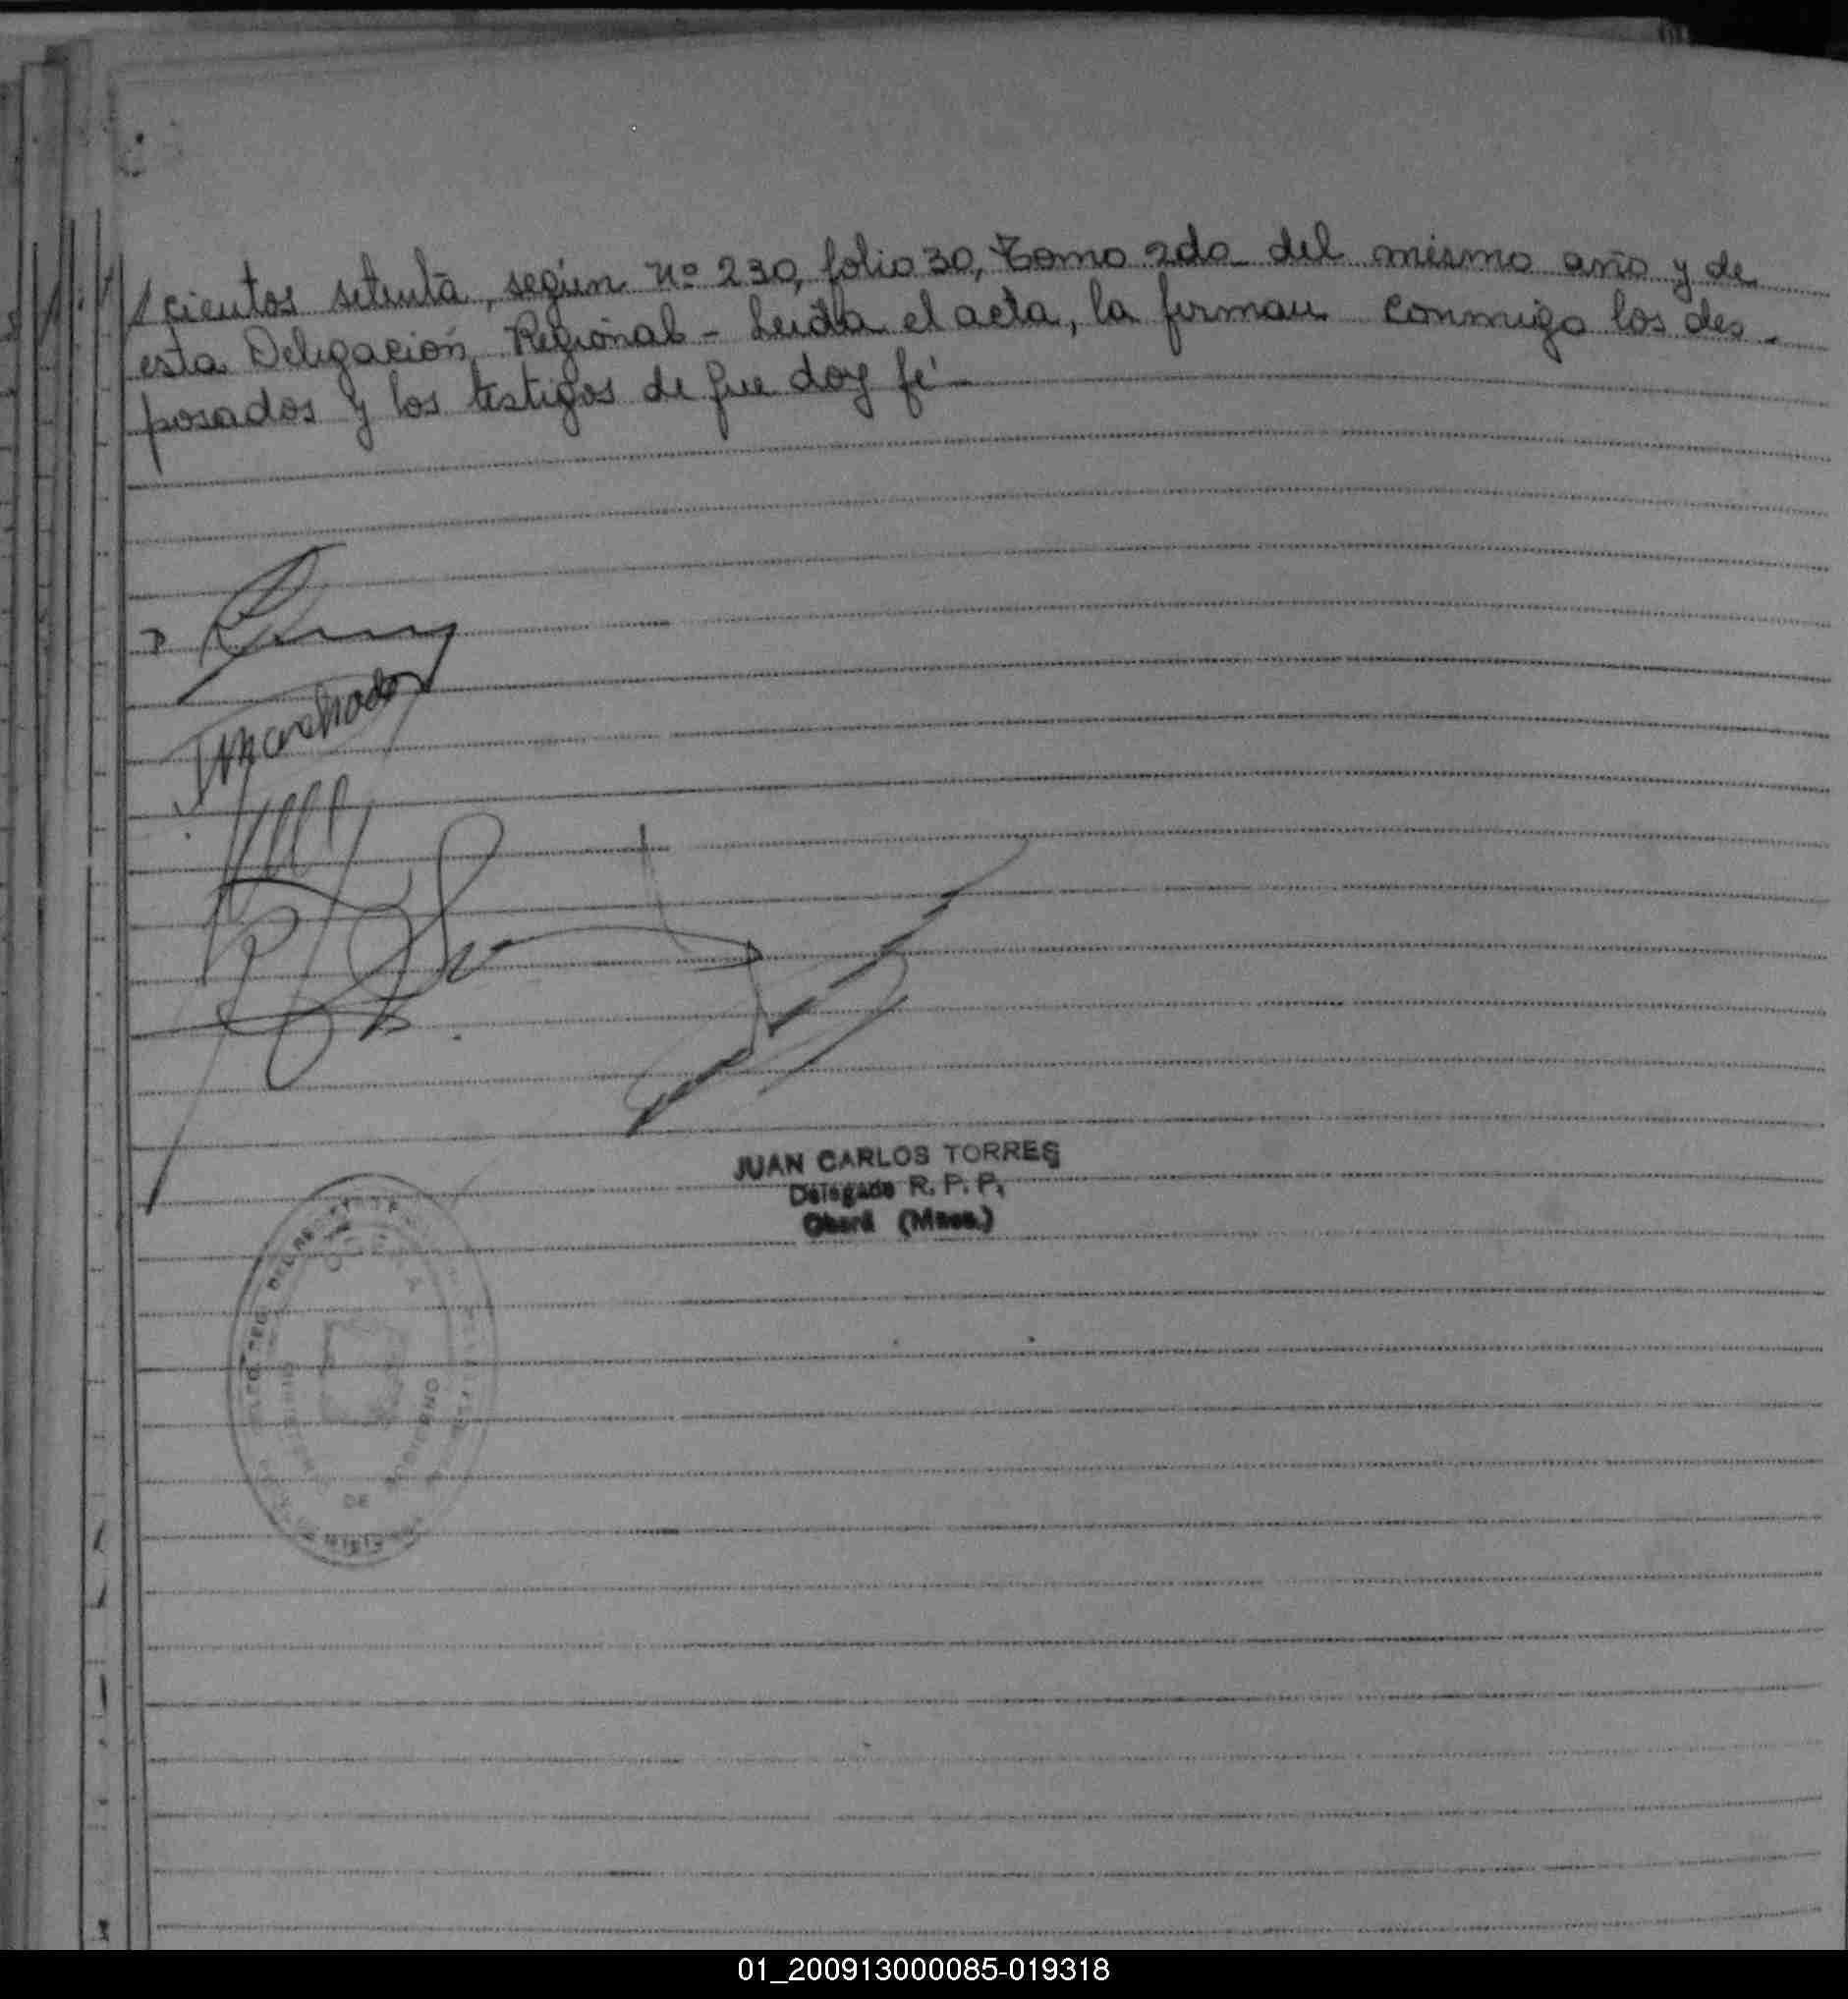 /cientos setenta, según nº 230, folio 30, Tomo 2do del mismo año y de
esta Delegación Regional - Leida el acta, la firman conmigo los des-
posados y los testigos de que doy fé -
JMachado
JUAN CARLOS TORRES
Delegado R. P. P.
Oberá (Mnes.)
DE GOBIERNO
01_200913000085-019318